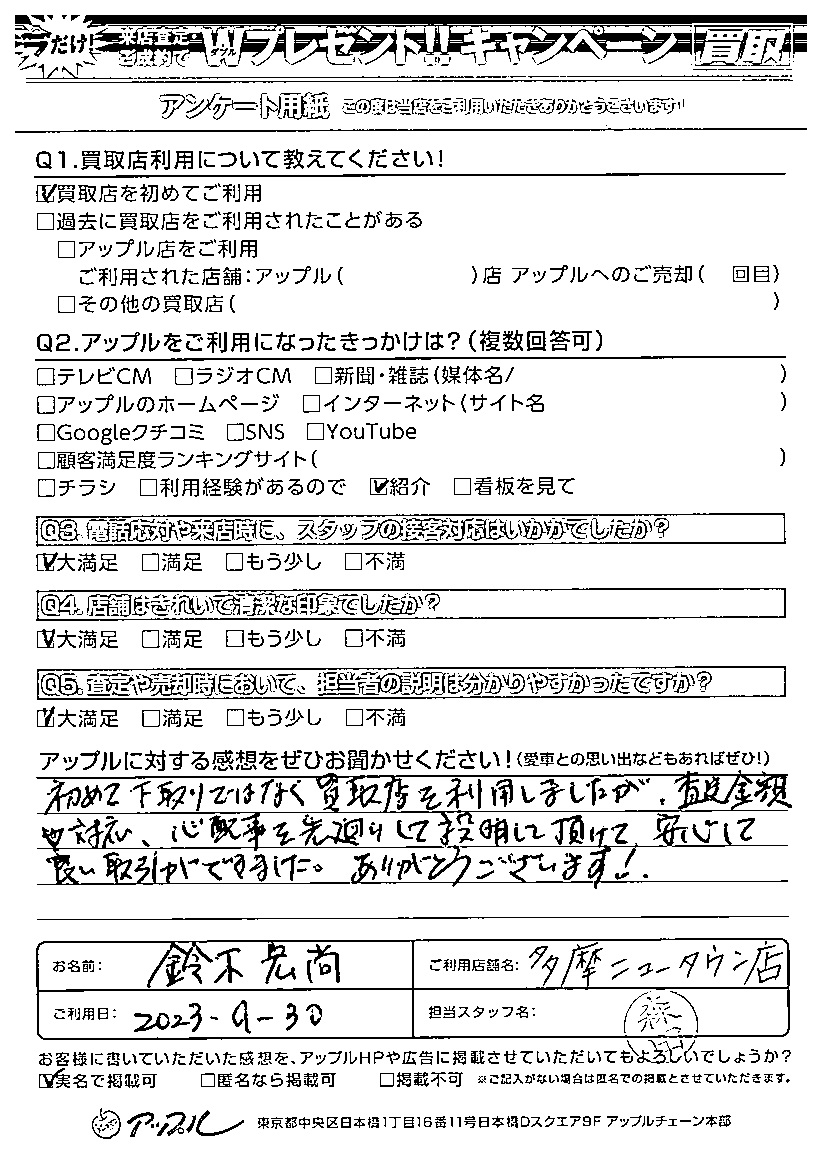 今だけ! 来店査定・ご成約で W ダブル プレゼント!! キャンペーン 買取
アンケート用紙 この度は当店をご利用いただきありがとうございます!
Q1.買取店利用について教えてください!
☑買取店を初めてご利用
□過去に買取店をご利用されたことがある
□アップル店をご利用
ご利用された店舗:アップル( )店 アップルへのご売却( 回目)
□その他の買取店( )
Q2.アップルをご利用になったきっかけは?(複数回答可)
□テレビCM □ラジオCM □新聞・雑誌(媒体名/ )
□アップルのホームページ □インターネット(サイト名 )
□Googleクチコミ □SNS □YouTube
□顧客満足度ランキングサイト( )
□チラシ □利用経験があるので ☑紹介 □看板を見て
Q3.電話応対や来店時に、スタッフの接客対応はいかがでしたか?
☑大満足 □満足 □もう少し □不満
Q4.店舗はきれいで清潔な印象でしたか?
☑大満足 □満足 □もう少し □不満
Q5.査定や売却時において、担当者の説明は分かりやすかったですか?
☑大満足 □満足 □もう少し □不満
アップルに対する感想をぜひお聞かせください!(愛車との思い出などもあればぜひ!)
初めて下取りではなく買取店を利用しましたが、査定金額
も対応、心配事を先廻りして説明して頂けて、安心して
良い取引ができました。ありがとうございます!.
お名前: 鈴木宏尚 ご利用店舗名: 多摩ニュータウン店
ご利用日: 2023-9-30 担当スタッフ名: 森田
お客様に書いていただいた感想を、アップルHPや広告に掲載させていただいてもよろしいでしょうか?
☑実名で掲載可 □匿名なら掲載可 □掲載不可 ※ご記入がない場合は匿名での掲載とさせていただきます。
アップル 東京都中央区日本橋1丁目16番11号日本橋Dスクエア9F アップルチェーン本部